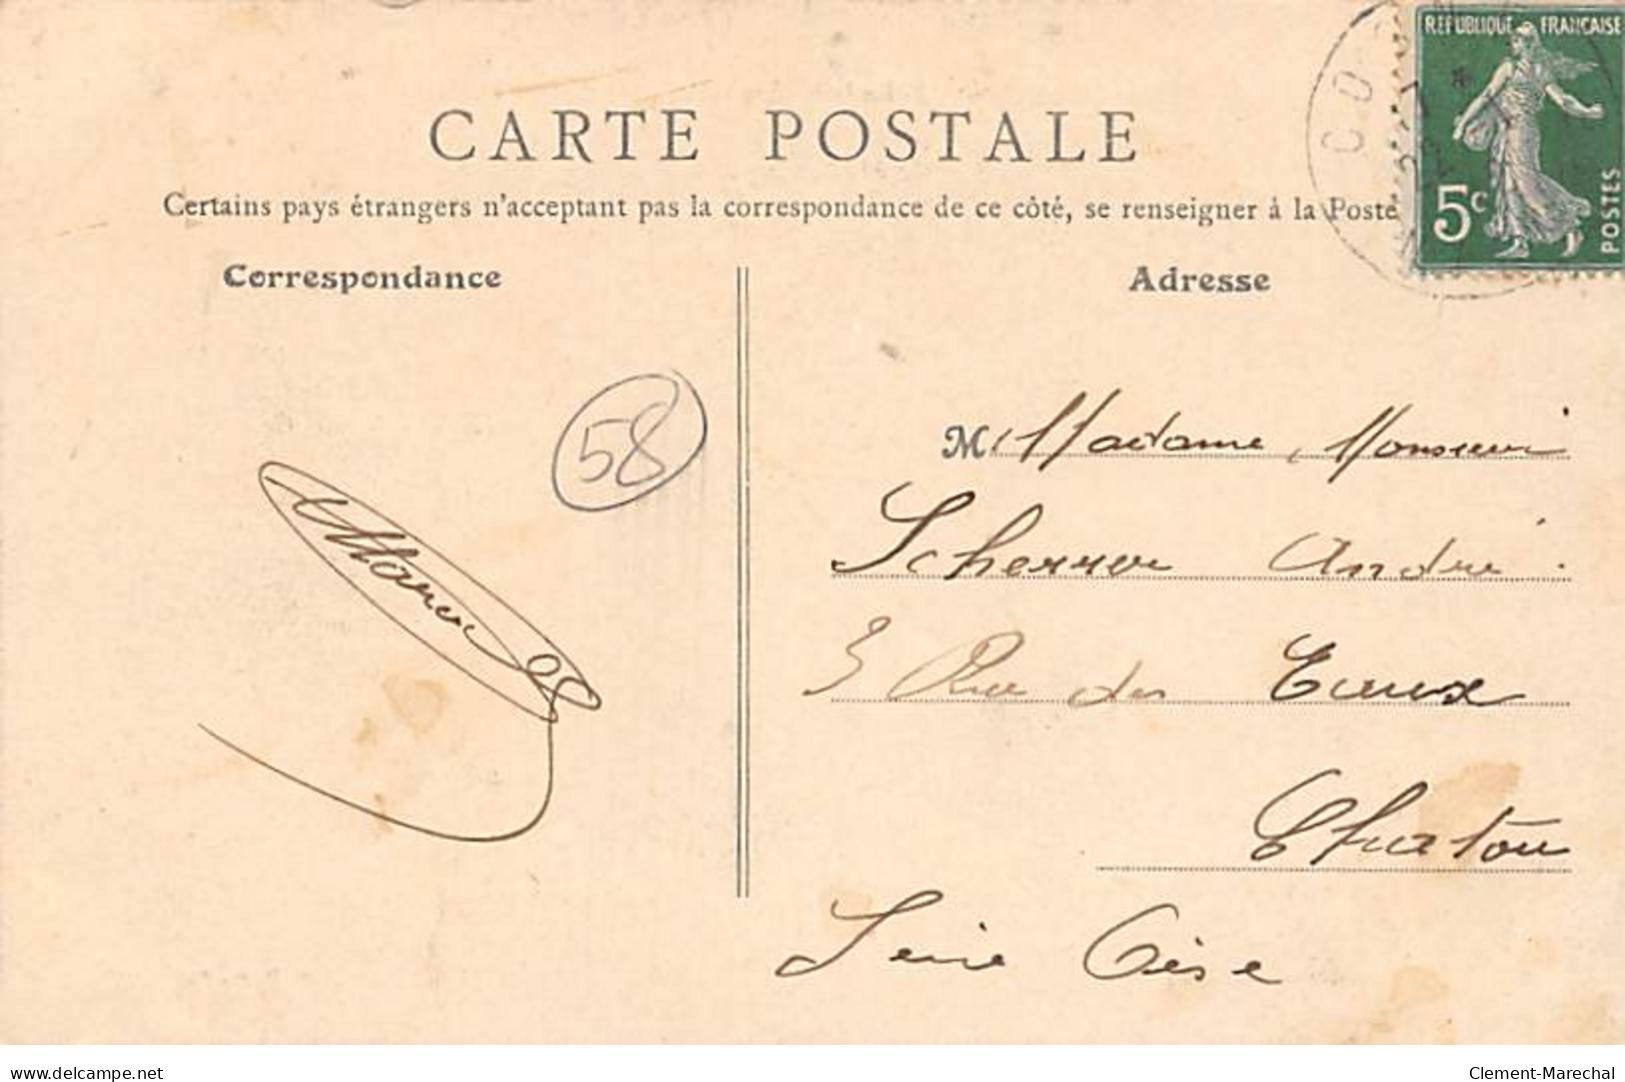 RÉPUBLIQUE FRANÇAISE
5c
POSTES
CARTE POSTALE
Certains pays étrangers n'acceptant pas la correspondance de ce côté, se renseigner à la Poste
Correspondance
Adresse
58
M. Madame, Monsieur
Scherrer André
3 Rue des
Chatou
Seine Oise
www.delcampe.net
Clement-Marechal